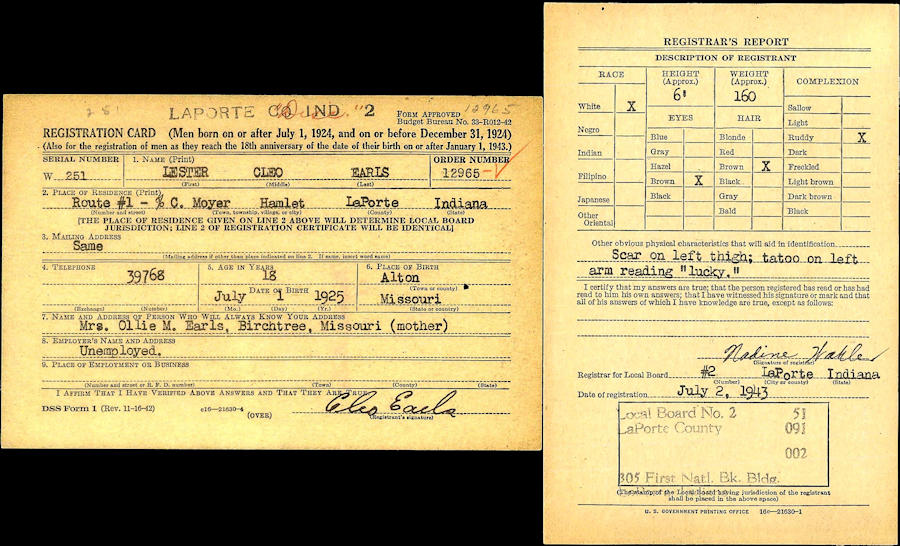 LAPORTE CO IND. 2
12965
FORM APPROVED
Budget Bureau No. 33-R012-42
REGISTRATION CARD (Men born on or after July 1, 1924, and on or before December 31, 1924)
(Also for the registration of men as they reach the 18th anniversary of the date of their birth on or after January 1, 1943.)
SERIAL NUMBER 1. NAME (Print) ORDER NUMBER
W 251 LESTER CLEO EARLS 12965
(First) (Middle) (Last)
2. PLACE OF RESIDENCE (Print)
Route #1 - % C. Moyer Hamlet LaPorte Indiana
(Number and street) (Town, township, village, or city) (County) (State)
[THE PLACE OF RESIDENCE GIVEN ON LINE 2 ABOVE WILL DETERMINE LOCAL BOARD
JURISDICTION; LINE 2 OF REGISTRATION CERTIFICATE WILL BE IDENTICAL]
3. MAILING ADDRESS
Same
(Mailing address if other than place indicated on line 2. If same, insert word same)
4. TELEPHONE 5. AGE IN YEARS 6. PLACE OF BIRTH
39768 18 Alton
DATE OF BIRTH (Town or county)
July 1 1925 Missouri
(Exchange) (Number) (Mo.) (Day) (Yr.) (State or country)
7. NAME AND ADDRESS OF PERSON WHO WILL ALWAYS KNOW YOUR ADDRESS
Mrs. Ollie M. Earls, Birchtree, Missouri (mother)
8. EMPLOYER'S NAME AND ADDRESS
Unemployed.
9. PLACE OF EMPLOYMENT OR BUSINESS
(Number and street or R. F. D. number) (Town) (County) (State)
I AFFIRM THAT I HAVE VERIFIED ABOVE ANSWERS AND THAT THEY ARE TRUE.
DSS Form 1 (Rev. 11-16-42) e16—21630-4 Cleo Earls
(OVER) (Registrant's signature)
REGISTRAR'S REPORT
DESCRIPTION OF REGISTRANT
RACE HEIGHT (Approx.) WEIGHT (Approx.) COMPLEXION
6' 160
White X EYES HAIR Sallow
Light
Negro Blue Blonde Ruddy X
Indian Gray Red Dark
Hazel Brown X Freckled
Filipino Brown X Black Light brown
Japanese Black Gray Dark brown
Other Oriental Bald Black
Other obvious physical characteristics that will aid in identification
Scar on left thigh; tatoo on left
arm reading "lucky."
I certify that my answers are true; that the person registered has read or has had
read to him his own answers; that I have witnessed his signature or mark and that
all of his answers of which I have knowledge are true, except as follows:
Nadine
(Signature of registrar)
Registrar for Local Board #2 LaPorte Indiana
(Number) (City or county) (State)
Date of registration July 2, 1943
Local Board No. 2 51
LaPorte County 091
002
305 First Natl. Bk. Bldg.
(The stamp of the Local Board having jurisdiction of the registrant
shall be placed in the above space)
U. S. GOVERNMENT PRINTING OFFICE 16e—21630-1